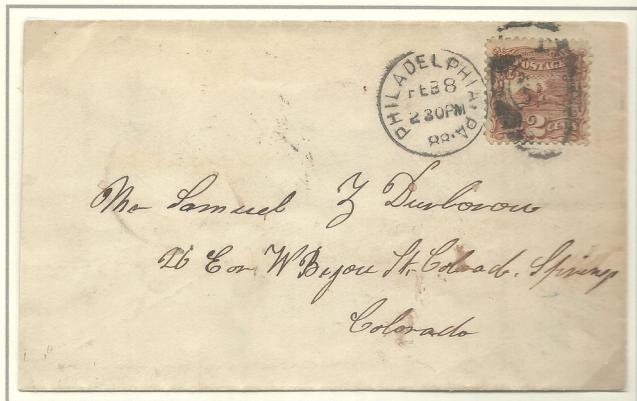 PHILADELPHIA, PA.
FEB 8
2 30 PM
88
POSTAGE
2
Mr Samuel Z Durborow
W Bijou St. Colorad. Springs
Colorado